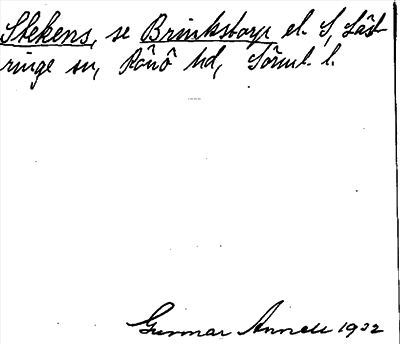 Stekens, se Brinkstorp el. S, Läst
ringe sn, Rönö hd, Sörml. l.
Gunnar Annell 1932